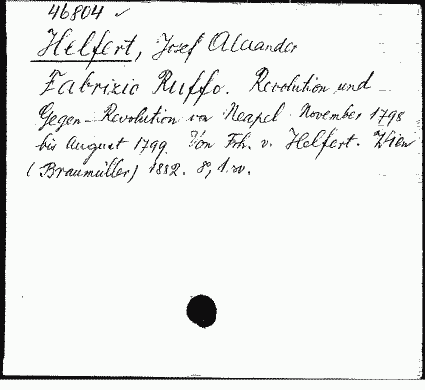 46804 ✓
Helfert, Josef Alexander
Fabrizio Ruffo. Revolution und
Gegen-Revolution von Neapel November 1798
bis August 1799. Von Frh. v. Helfert. Wien
(Braumüller) 1882. 8, 1.